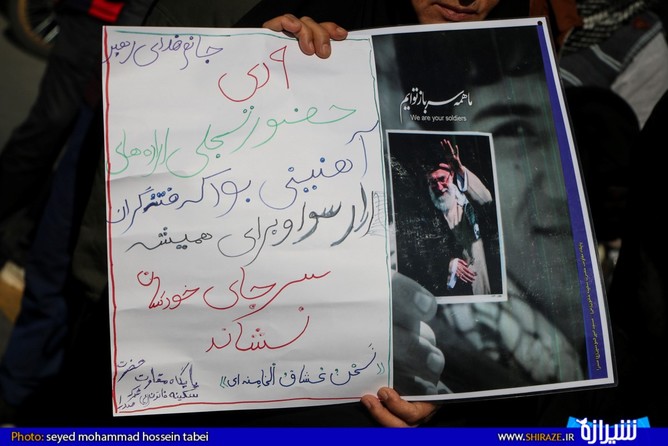 جانم فدای رهبر
۹ دی
حضور تجلی اراده های
آهنینی بود که فتنه گران
را رسوا و برای همیشه
سر جای خودشان
نشاند
«نحن عشاق الخامنه ای»
پایگاه مقاومت حضرت
سکینه
ما همه سرباز توایم
We are your soldiers
Photo: seyed mohammad hossein tabei
WWW.SHIRAZE.IR
شیرازه